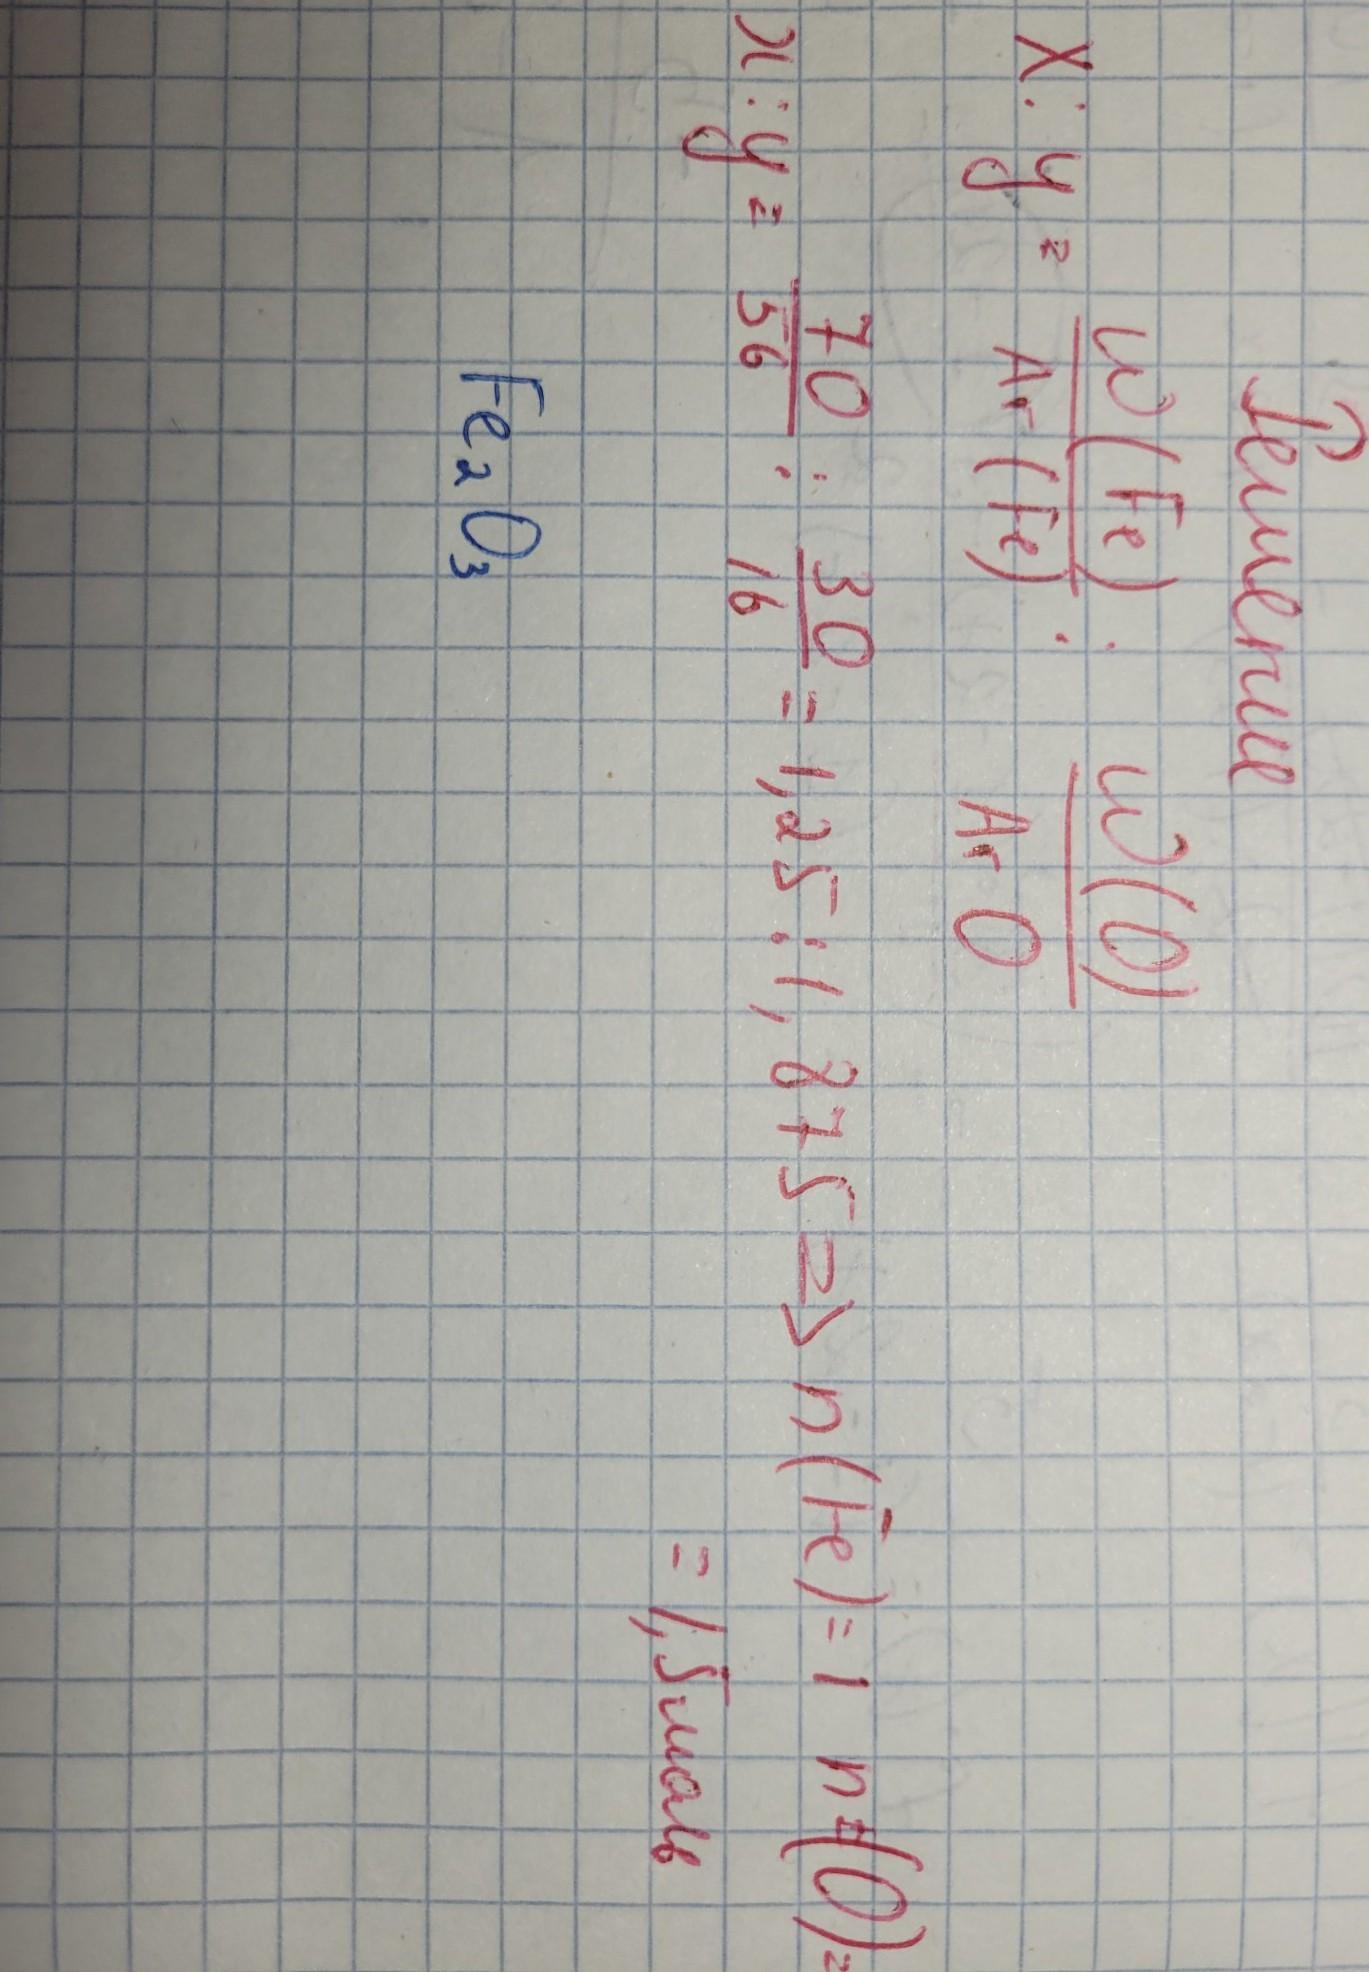 Решение
X : y = W(Fe) / Ar(Fe) : W(O) / Ar O
x : y = 70/56 : 30/16 = 1,25 : 1,875 => n(Fe) = 1 n(O) =
= 1,5 моль
Fe₂O₃